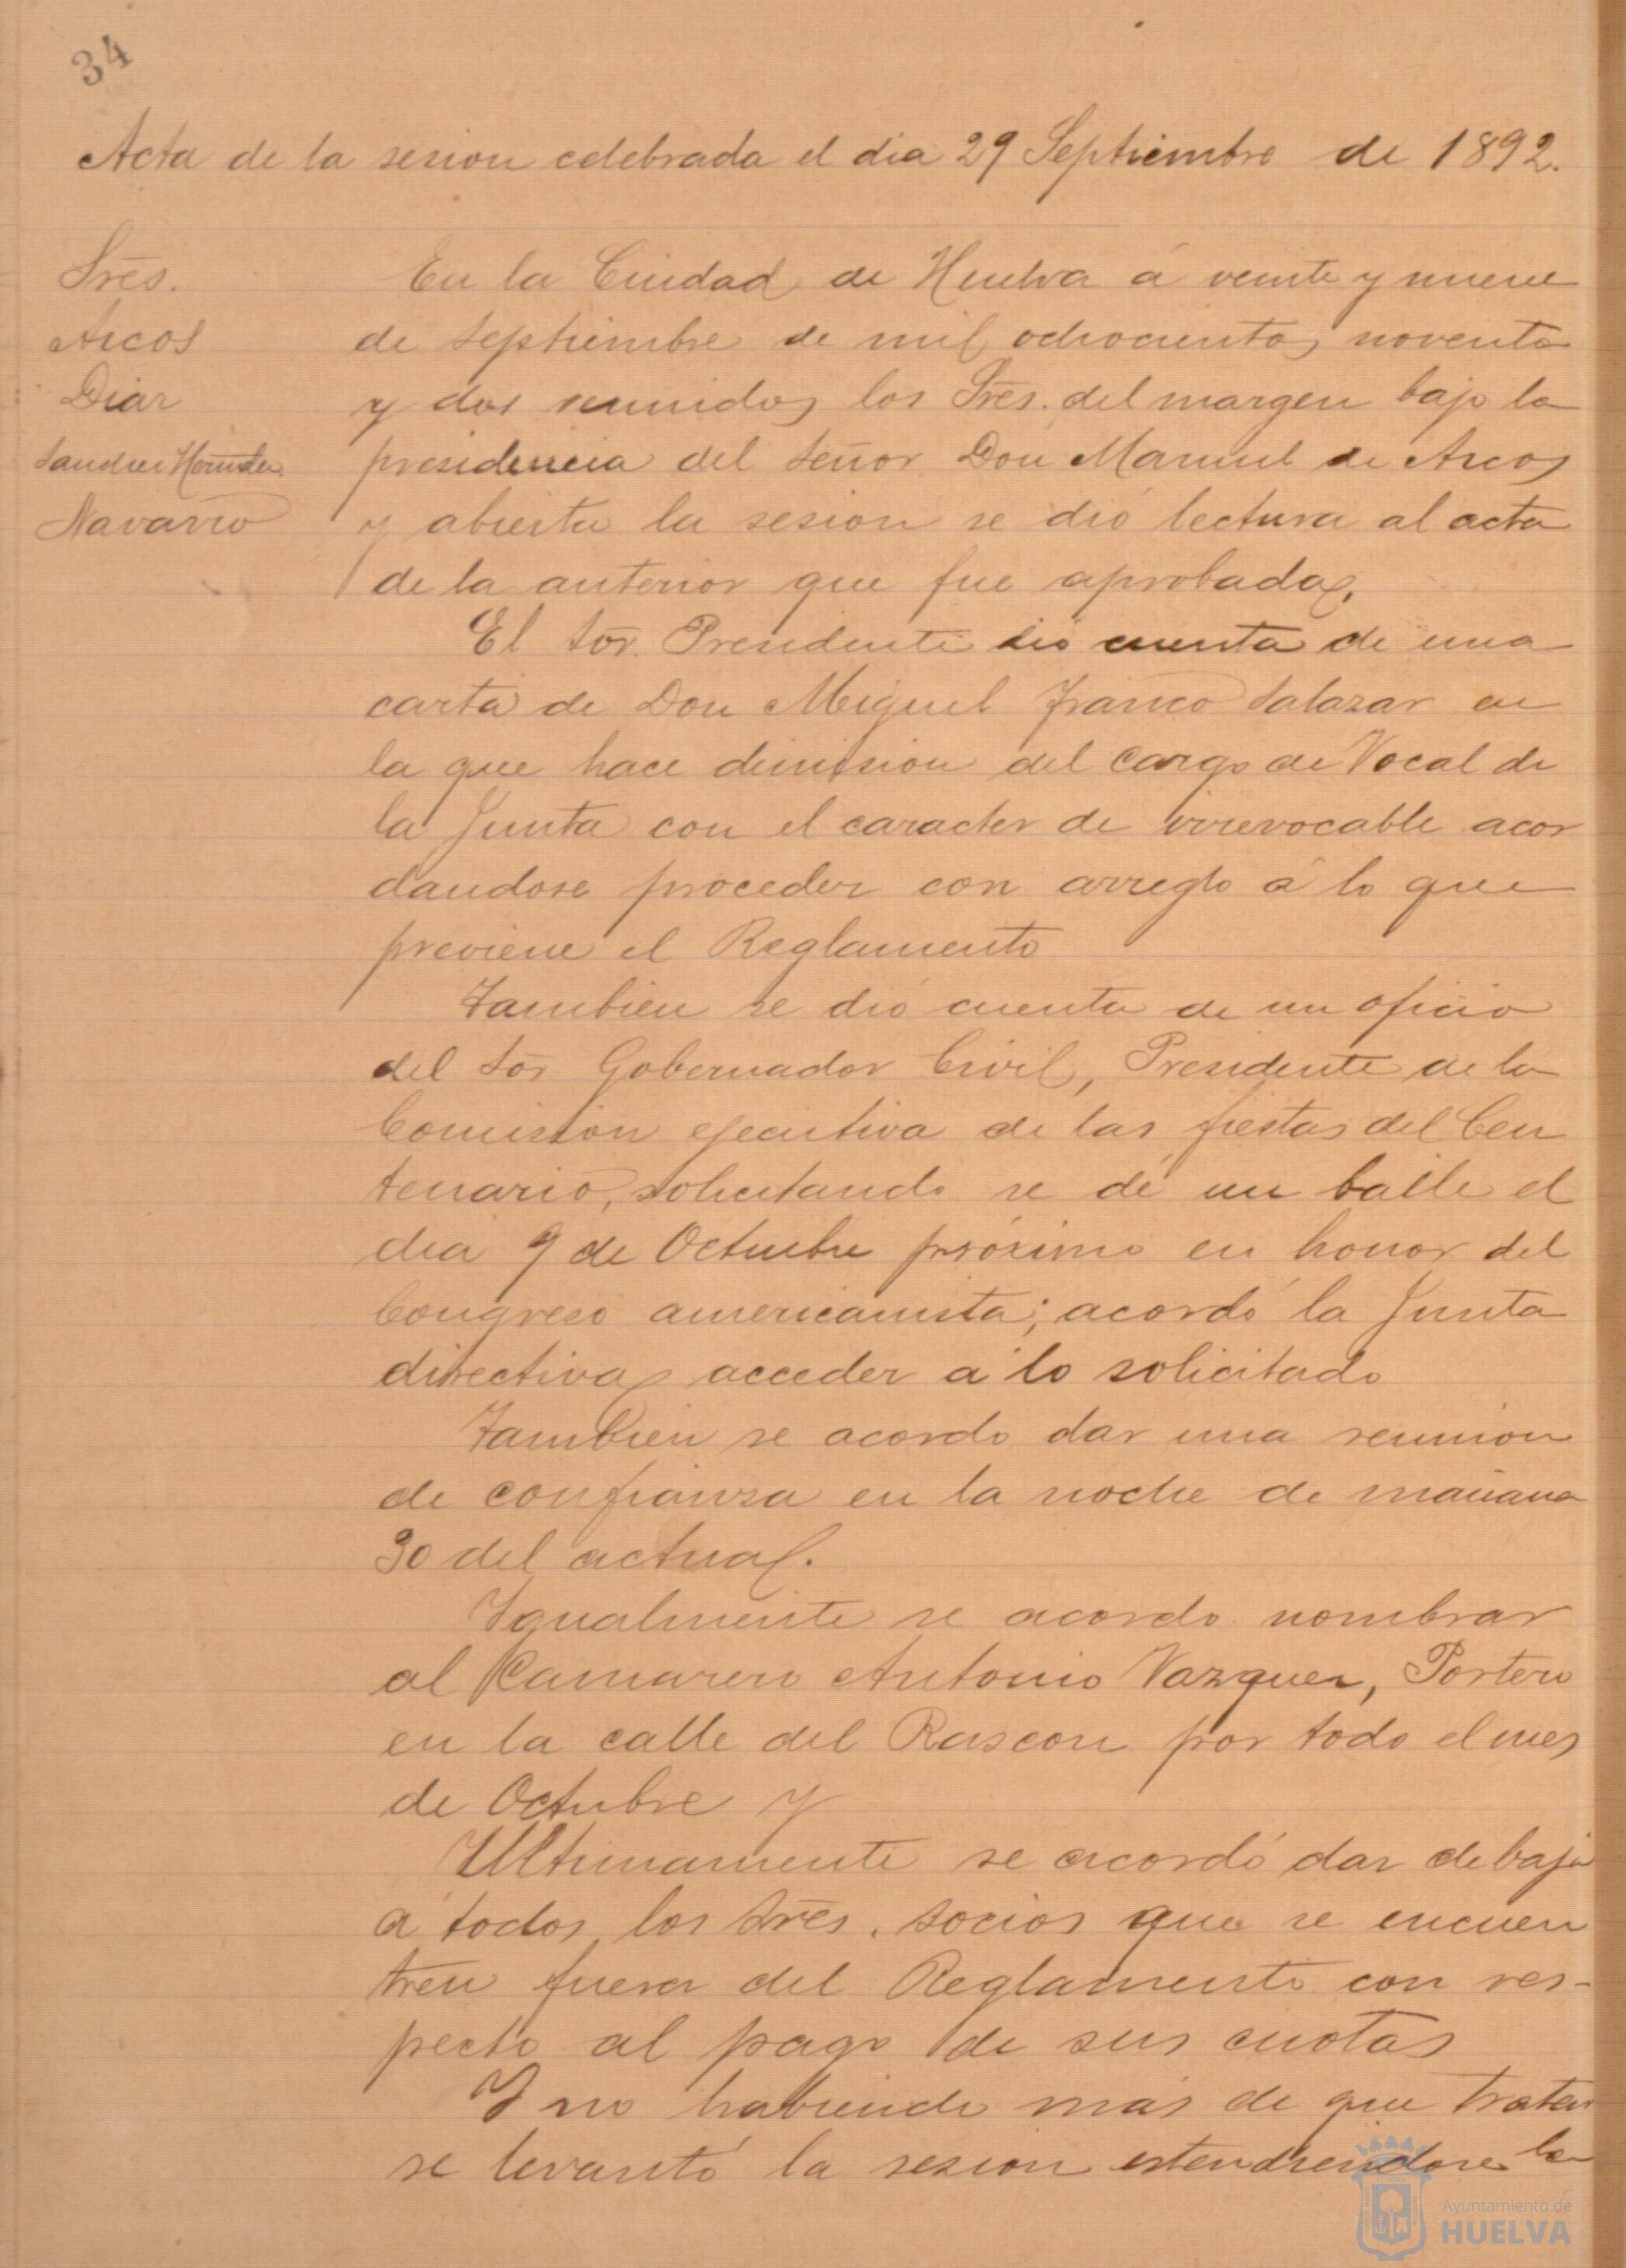 34
Acta de la sesion celebrada el dia 29 Septiembre de 1892.
Sres.
Arcos
Diaz
Sanchez Hernandez
Navarro
En la Ciudad de Huelva á veinte y nueve
de Septiembre de mil ochocientos noventa
y dos reunidos los Sres. del margen bajo la
presidencia del Señor Don Manuel de Arcos
y abierta la sesion se dió lectura al acta
de la anterior que fue aprobada.
El Sor. Presidente dió cuenta de una
carta de Don Miguel Franco Salazar en
la que hace dimision del cargo de Vocal de
la Junta con el caracter de irrevocable acor
dandose proceder con arreglo á lo que
previene el Reglamento
Tambien se dió cuenta de un oficio
del Sor Gobernador Civil, Presidente de la
Comision ejecutiva de las fiestas del Cen
tenario, solicitando se dé un baile el
dia 9 de Octubre próximo en honor del
Congreso americanista; acordó la Junta
directiva acceder á lo solicitado
Tambien se acordo dar una reunion
de confianza en la noche de mañana
30 del actual.
Igualmente se acordo nombrar
al Camarero Antonio Vazquez, Portero
en la calle del Rascon por todo el mes
de Octubre y
Ultimamente se acordó dar de baja
á todos los Sres. socios que se encuen
tren fuera del Reglamento con res-
pecto al pago de sus cuotas
Y no habiendo más de que tratar
se levantó la sesion estendiendose la
Ayuntamiento de
HUELVA